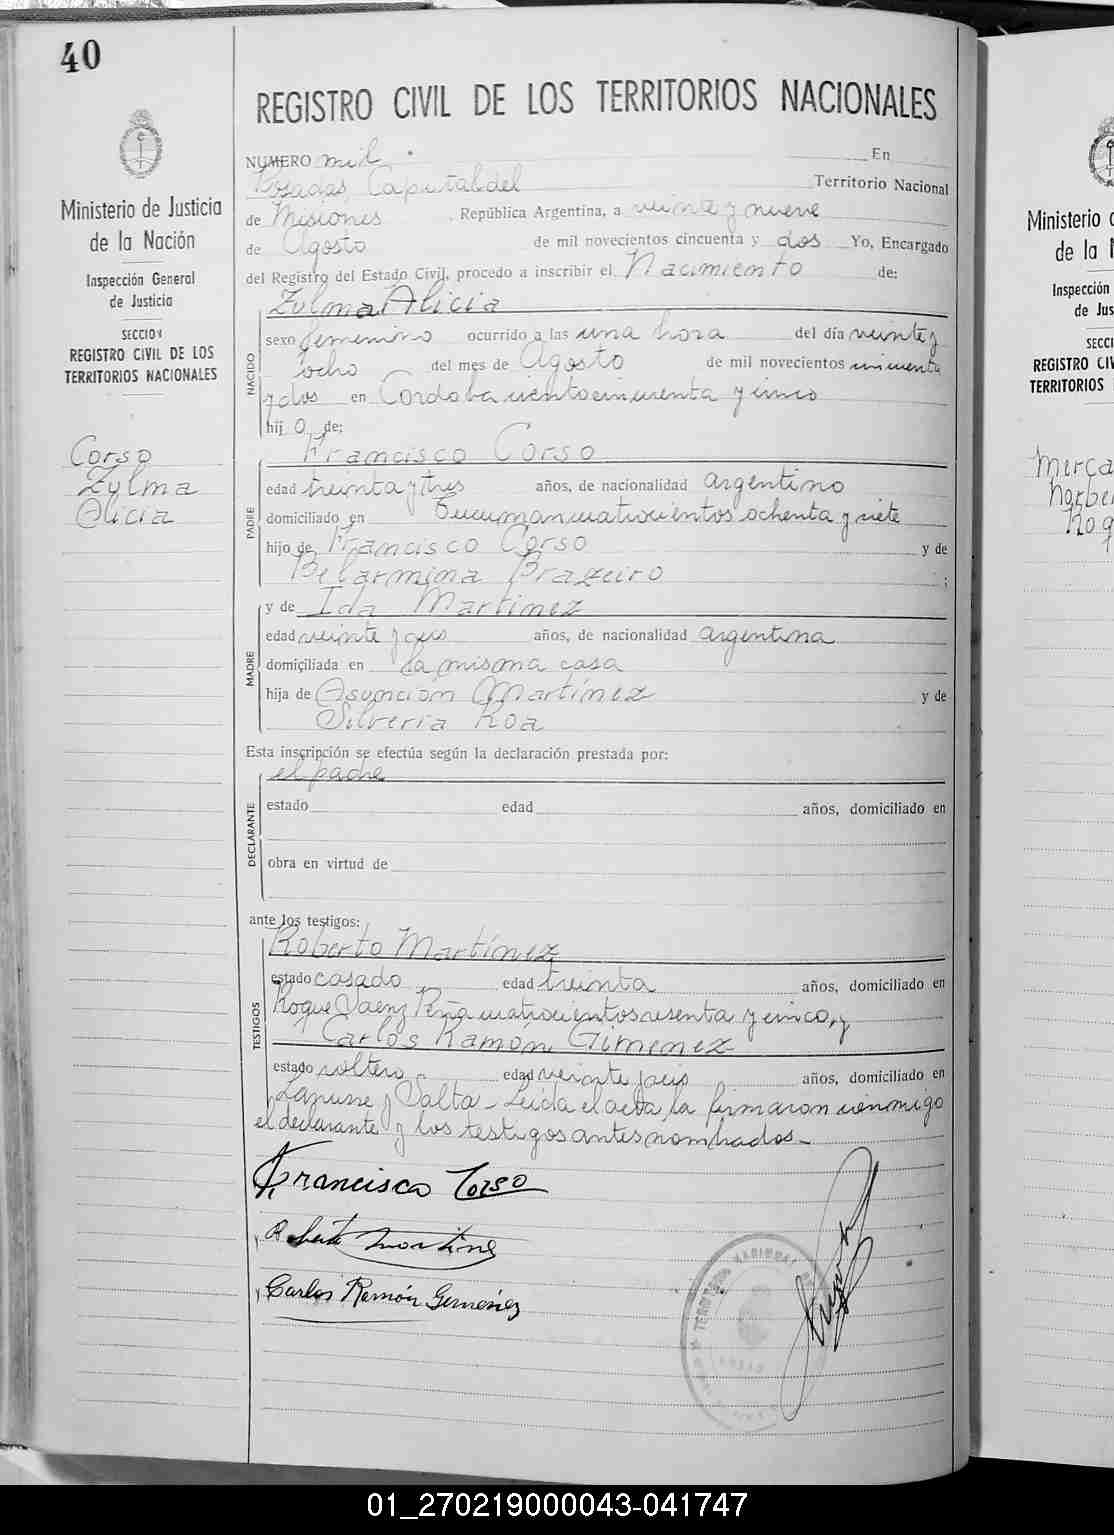 40
Ministerio de Justicia
de la Nación
Inspección General
de Justicia
SECCION
REGISTRO CIVIL DE LOS
TERRITORIOS NACIONALES
Corso
Zylma
Alicia
REGISTRO CIVIL DE LOS TERRITORIOS NACIONALES
NUMERO mil En
Posadas Capital del Territorio Nacional
de Misiones , República Argentina, a veinte y nueve
de Agosto de mil novecientos cincuenta y dos Yo, Encargado
del Registro del Estado Civil, procedo a inscribir el Nacimiento de:
Zylma Alicia
NACIDO
sexo femenino ocurrido a las una hora del día veinte y
ocho del mes de Agosto de mil novecientos cincuenta
y dos en Córdoba ciento cincuenta y cinco
hij o de:
Francisco Corso
PADRE
edad treinta y tres años, de nacionalidad argentino
domiciliado en Tucuman cuatrocientos ochenta y siete
hijo de Francisco Corso y de
Belarmina Brazeiro ;
y de Ida Martinez
MADRE
edad veinte y seis años, de nacionalidad argentina
domiciliada en la misma casa
hija de Asuncion Martínez y de
Silveria Roa
Esta inscripción se efectúa según la declaración prestada por:
el padre
DECLARANTE
estado edad años, domiciliado en
obra en virtud de
ante los testigos:
Roberto Martínez
TESTIGOS
estado casado edad treinta años, domiciliado en
Roque Saenz Peña cuatrocientos sesenta y cinco, y
Carlos Ramón Gimenez
estado soltero edad veinte y seis años, domiciliado en
Lanusse y Salta - Leída el acta la firmaron conmigo
el declarante y los testigos antes nombrados -
Francisco Corso
Roberto Martinez
Carlos Ramón Gimenez
Ministerio d
de la N
Inspección
de Jus
SECCI
REGISTRO CIV
TERRITORIOS
Merca
Norber
Roq
01_270219000043-041747